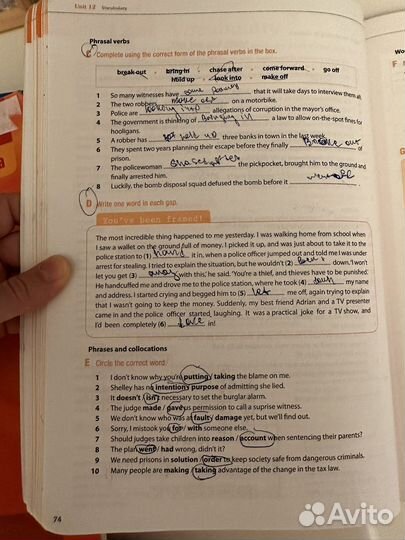 Unit 12 Vocabulary
Phrasal verbs
C Complete using the correct form of the phrasal verbs in the box.
break out • bring in • chase after • come forward • go off
hold up • look into • make off
1 So many witnesses have come that it will take days to interview them all.
2 The two robbers on a motorbike.
3 Police are looking into allegations of corruption in the mayor's office.
4 The government is thinking of bringing in a law to allow on-the-spot fines for
hooligans.
5 A robber has held up three banks in town in the last week.
6 They spent two years planning their escape before they finally of
prison.
7 The policewoman the pickpocket, brought him to the ground and
finally arrested him.
8 Luckily, the bomb disposal squad defused the bomb before it
D Write one word in each gap.
You've been framed!
The most incredible thing happened to me yesterday. I was walking home from school when
I saw a wallet on the ground full of money. I picked it up, and was just about to take it to the
police station to (1) hand it in, when a police officer jumped out and told me I was under
arrest for stealing. I tried to explain the situation, but he wouldn't (2) down. 'I won't
let you get (3) away with this,' he said. 'You're a thief, and thieves have to be punished.'
He handcuffed me and drove me to the police station, where he took (4) my name
and address. I started crying and begged him to (5) let me off, again trying to explain
that I wasn't going to keep the money. Suddenly, my best friend Adrian and a TV presenter
came in and the police officer started laughing. It was a practical joke for a TV show, and
I'd been completely (6) in!
Phrases and collocations
E Circle the correct word.
1 I don't know why you're putting / taking the blame on me.
2 Shelley has no intention / purpose of admitting she lied.
3 It doesn't / isn't necessary to set the burglar alarm.
4 The judge made / gave us permission to call a suprise witness.
5 We don't know who was at fault / damage yet, but we'll find out.
6 Sorry, I mistook you for / with someone else.
7 Should judges take children into reason / account when sentencing their parents?
8 The plan went / had wrong, didn't it?
9 We need prisons in solution / order to keep society safe from dangerous criminals.
10 Many people are making / taking advantage of the change in the tax law.
74
F
Avito